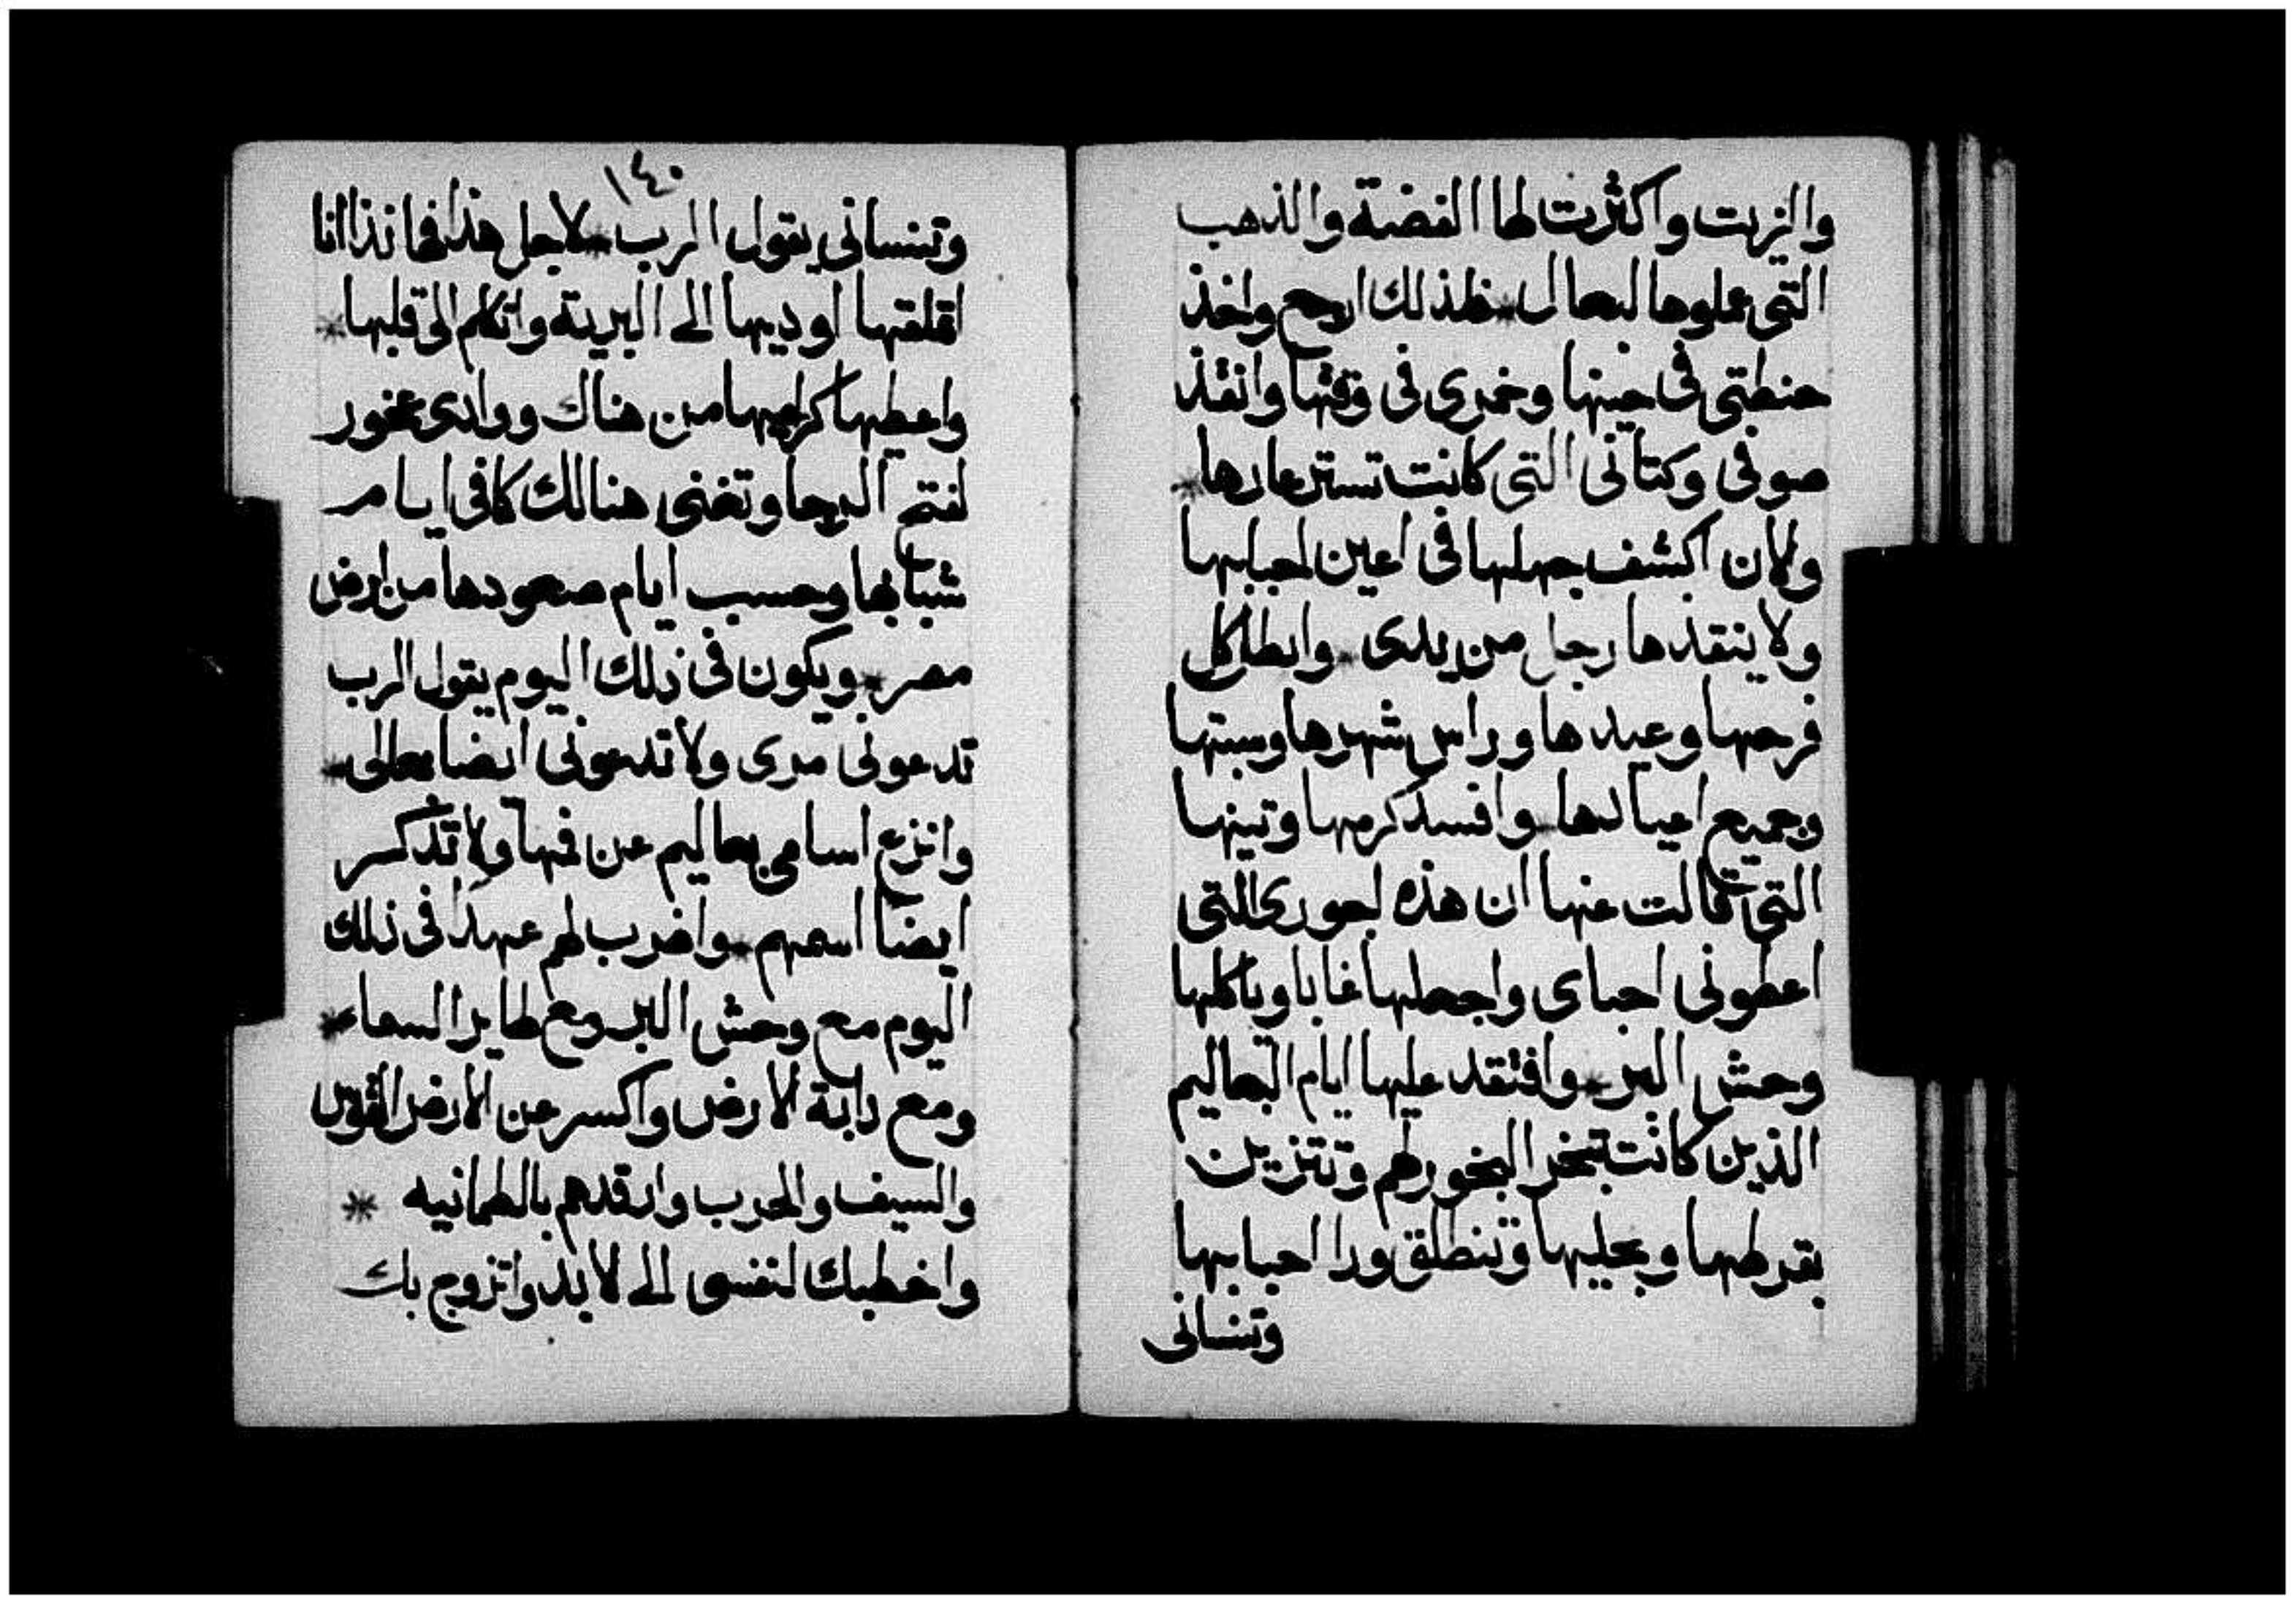 والزيت واكثرت لها الفضة والذهب
التي عملوها لبعال فلذلك ارجع واخذ
حنطتي في حينها وخمري في وقتها وانقذ
صوفي وكتاني التي كانت تستر عارها
ولان اكشف جهلها في اعين احبابها
ولا ينقذها رجل من يدى وابطل كل
فرحها وعيدها وراس شهرها وسبتها
وجميع اعيادها وافسد كرمها وتينها
التي قالت عنها ان هذه اجورى التي
اعطوني احباى واجعلها غابا وياكلها
وحش البر وافتقد عليها ايام البعاليم
الذين كانت تبخر البخور لهم وتتزين
بقرطها وبحليها وتنطلق ورا احبابها
وتنساني
١٤٠
وتنساني يقول الرب لاجل هذا فهانذا انا
اتملقها اوديها الى البرية واتكلم الى قلبها
واعطيها كراميها من هناك ووادى عخور
لفتح الرجا وتغني هنالك كافي ايام
شبابها وحسب ايام صعودها من ارض
مصر ويكون في ذلك اليوم يقول الرب
تدعوني مرى ولا تدعوني ايضا بعالي
وانزع اسامي بعاليم عن فمها ولا تذكر
ايضا اسمهم واضرب لهم عهدا في ذلك
اليوم مع وحش البر ومع طاير السماء
ومع دابة الارض واكسر عن الارض القوس
والسيف والحرب وارقدهم بالطمانيه
واخطبك لنفسى الى لابد واتزوج بك